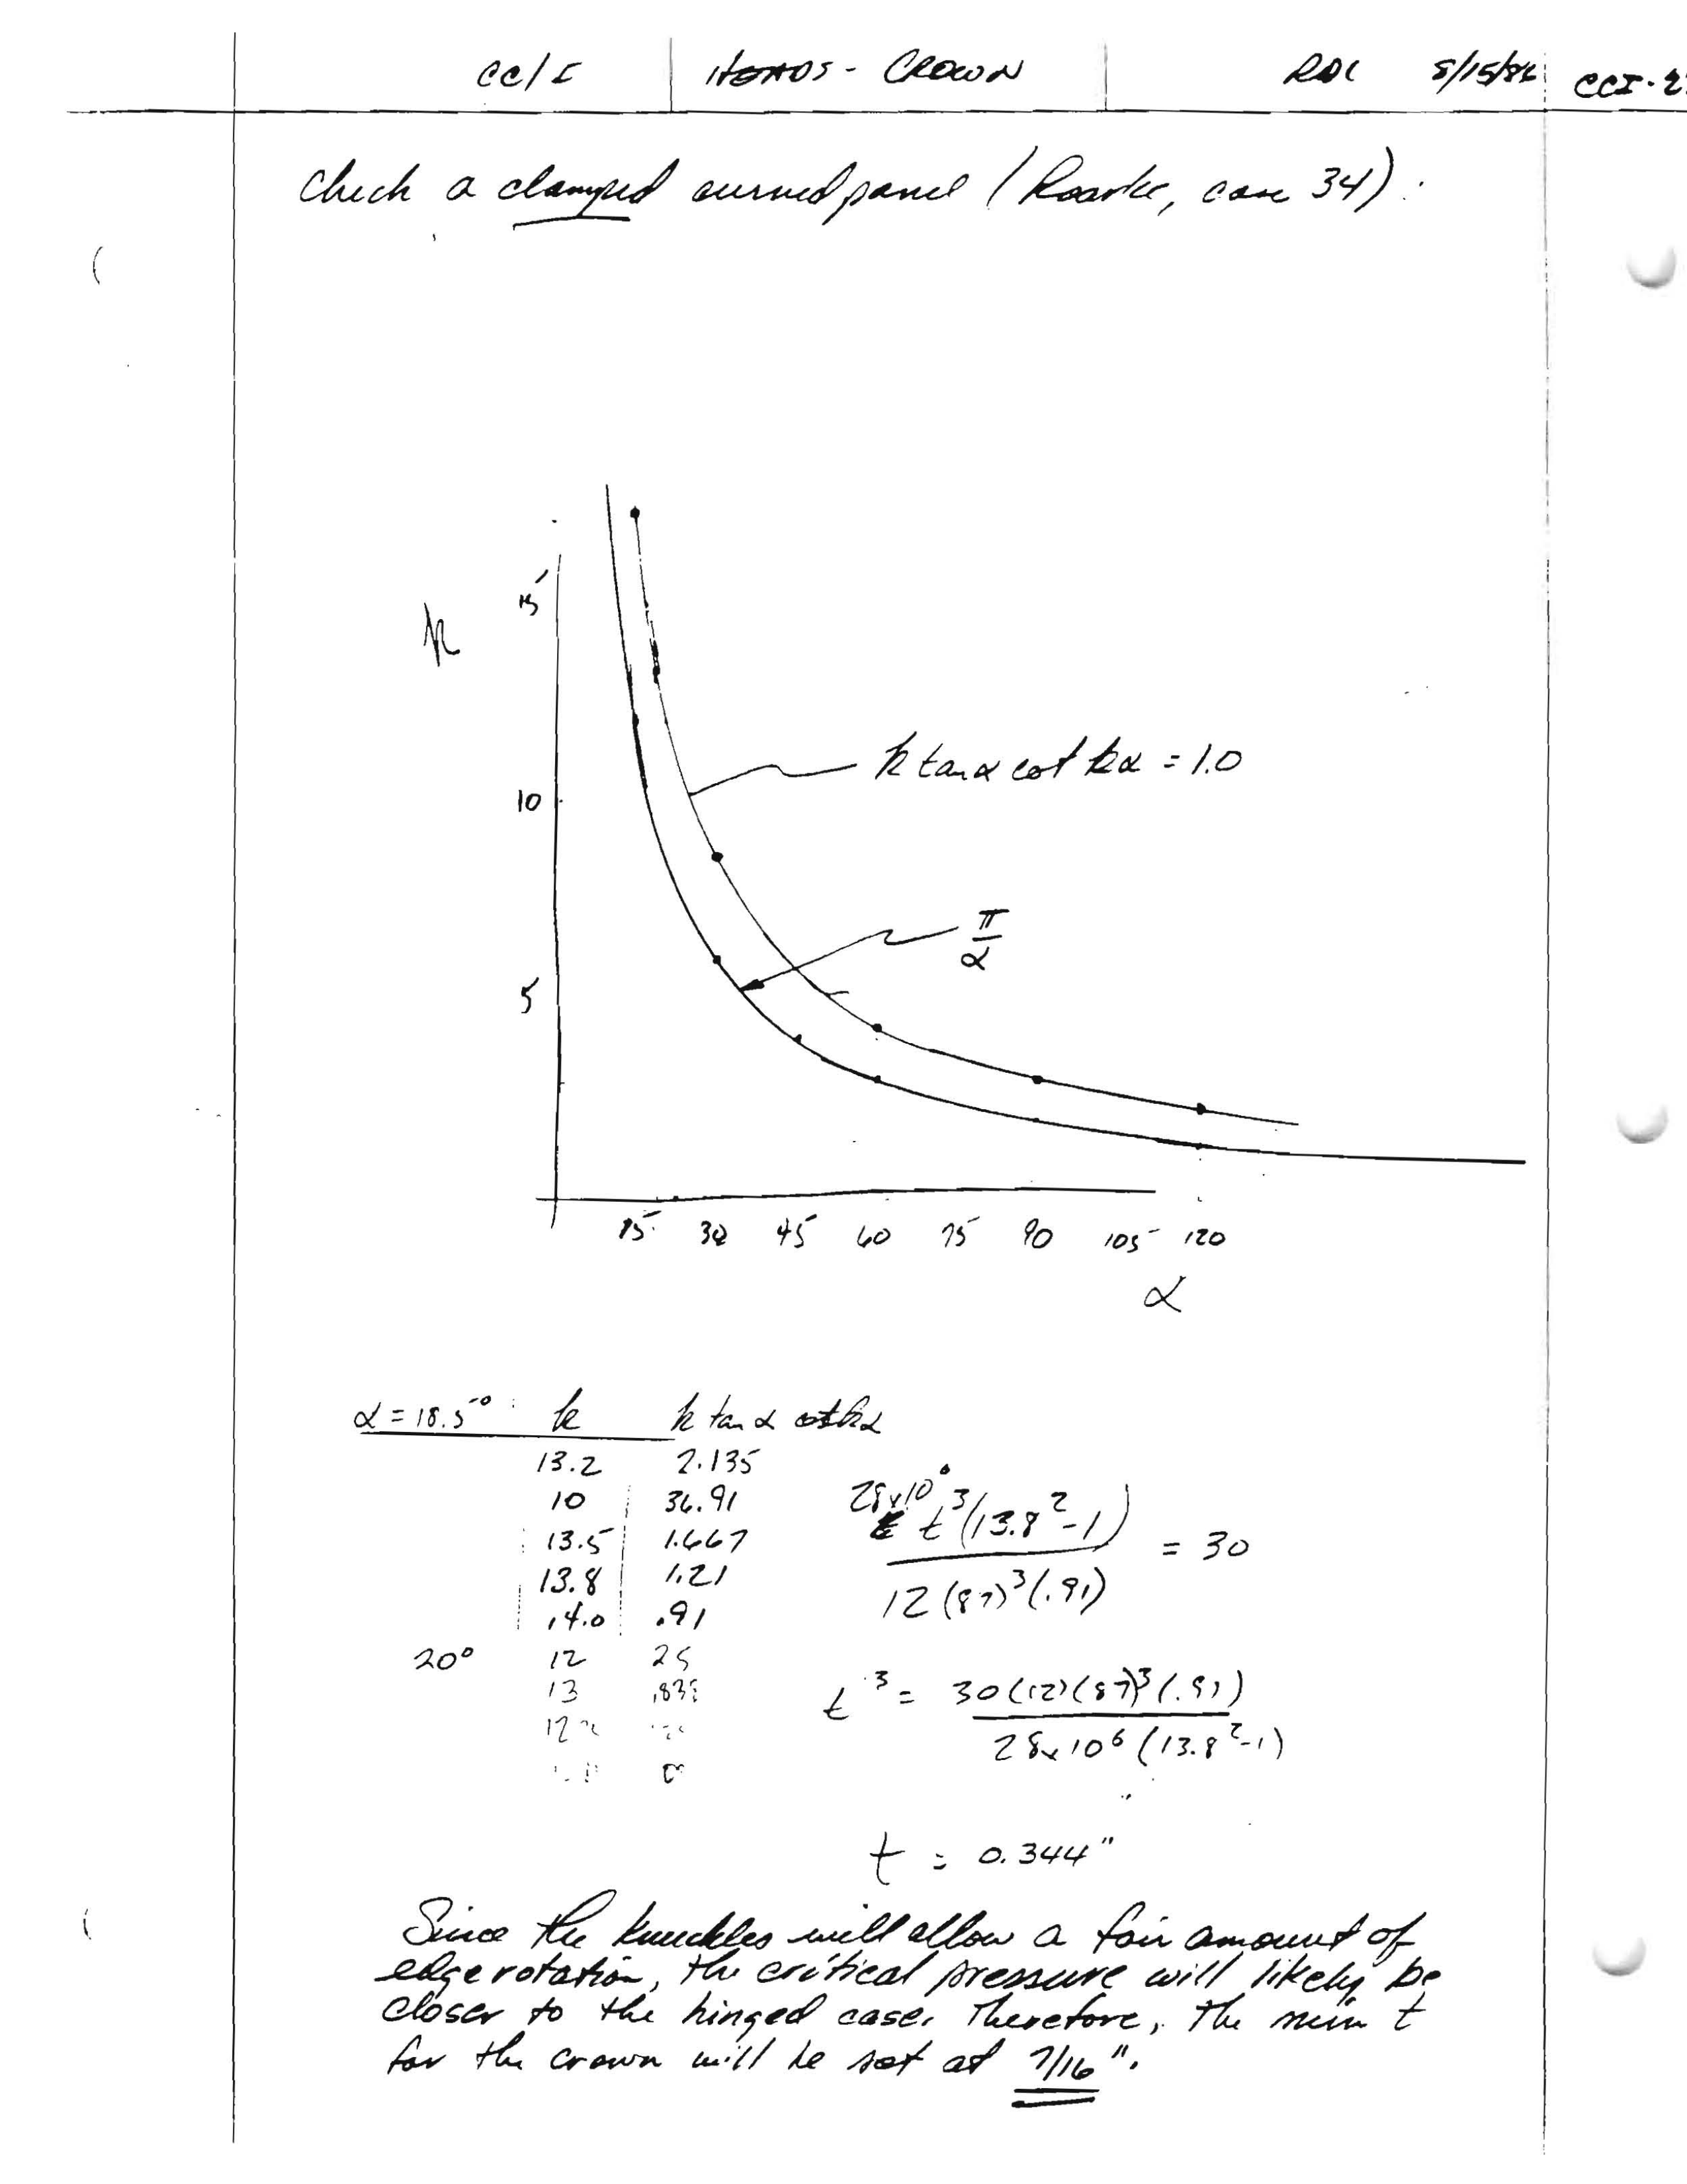 CC/I HEADS - CROWN RDC 5/15/86 CCI-2
Check a clamped curved panel (Roark, case 34):
k
15
10
5
k tan α cot kα = 1.0
π/α
15 30 45 60 75 90 105 120
α
α = 18.5° : k k tan α cot kα
13.2 2.135
10 36.91
13.5 1.667
13.8 1.21
14.0 .91
20° 12 25
13
28x10⁶ t³(13.8² - 1) / 12(87)³(.91) = 30
t³ = 30(12)(87)³(.91) / 28x10⁶ (13.8² - 1)
t = 0.344"
Since the knuckles will allow a fair amount of
edge rotation, the critical pressure will likely be
closer to the hinged case. Therefore, the min t
for the crown will be set at 7/16".